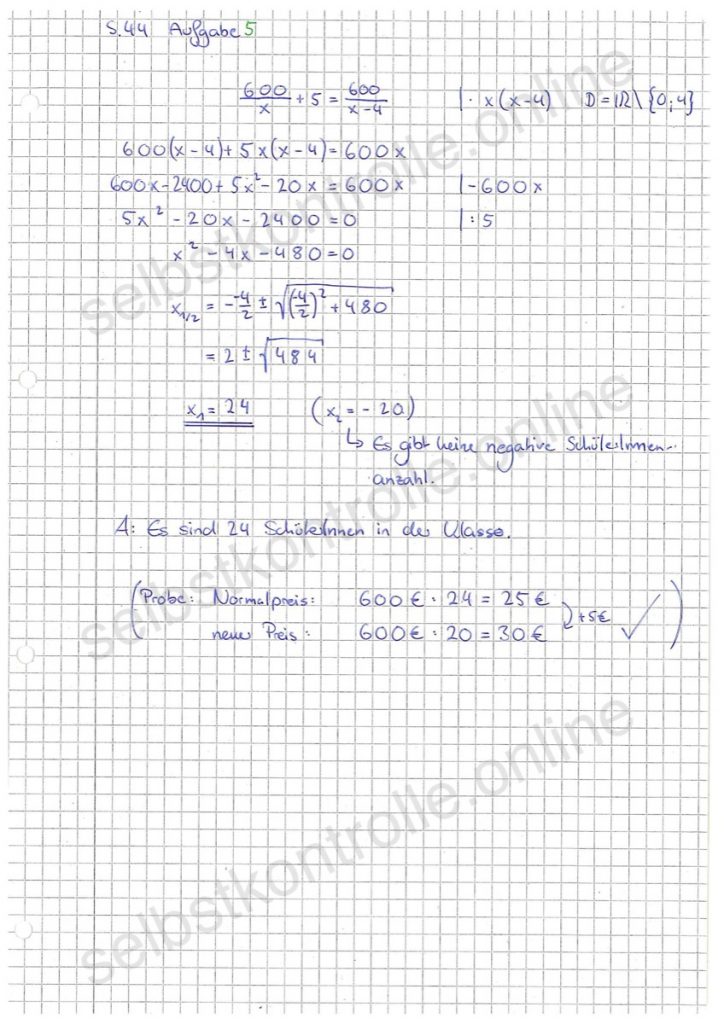 S.44 Aufgabe 5
600/x + 5 = 600/(x-4) | · x(x-4) D = ℝ\{0;4}
600(x-4) + 5x(x-4) = 600x
600x - 2400 + 5x² - 20x = 600x | -600x
5x² - 20x - 2400 = 0 | :5
x² - 4x - 480 = 0
x₁/₂ = - -4/2 ± √((-4/2)² + 480)
= 2 ± √484
x₁ = 24 (x₂ = -20)
↳ Es gibt keine negative SchülerInnen-
anzahl.
A: Es sind 24 SchülerInnen in der Klasse.
(Probe: Normalpreis: 600€ : 24 = 25€
neuer Preis: 600€ : 20 = 30€ +5€ ✓)
selbstkontrolle.online
selbstkontrolle.online
selbstkontrolle.online